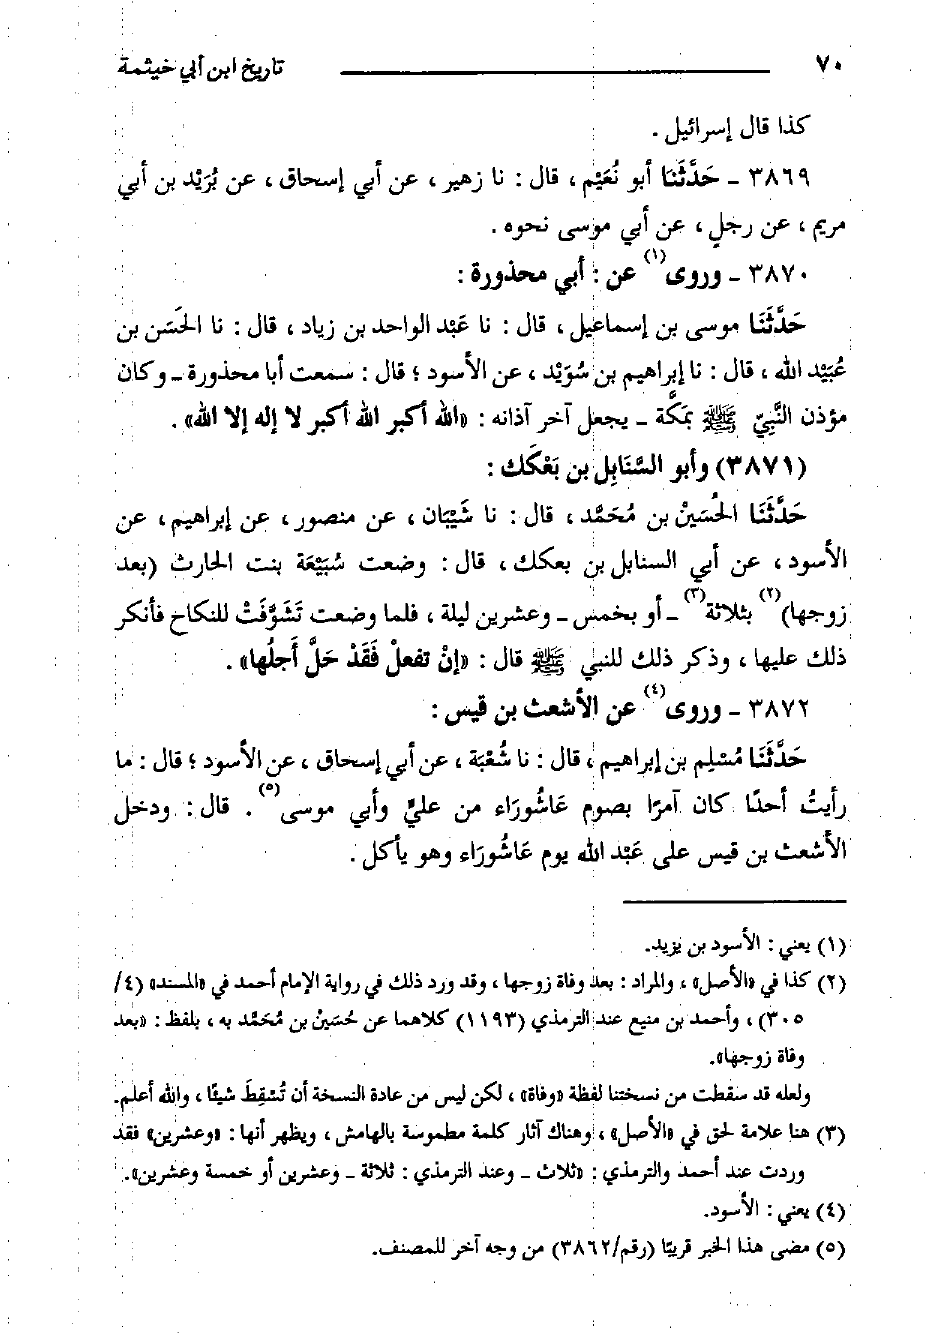 ٧٠ تاريخ ابن أبي خيثمة
كذا قال إسرائيل .
٣٨٦٩ ـ حَدَّثَنَا أبو نُعَيْم ، قال : نا زهير ، عن أبي إسحاق ، عن بُرَيْد بن أبي
مريم ، عن رجلٍ ، عن أبي موسى نحوه .
٣٨٧٠ ـ وروى(١) عن : أبي محذورة :
حَدَّثَنَا موسى بن إسماعيل ، قال : نا عَبْد الواحد بن زياد ، قال : نا الحَسَن بن
عُبَيْد الله ، قال : نا إبراهيم بن سُوَيْد ، عن الأسود ؛ قال : سمعت أبا محذورة ـ وكان
مؤذن النَّبِيّ ﷺ بمَكَّة ـ يجعل آخر آذانه : «الله أكبر الله أكبر لا إله إلا الله» .
(٣٨٧١) وأبو السَّنَابِل بن بَعْكَك :
حَدَّثَنَا الحُسَيْنْ بن مُحَمَّد ، قال : نا شَيْبَان ، عن منصور ، عن إبراهيم ، عن
الأسود ، عن أبي السنابل بن بعكك ، قال : وضعت سُبَيْعَة بنت الحارث (بعد
زوجها)(٢) بثلاثة(٣) ـ أو بخمس ـ وعشرين ليلة ، فلما وضعت تَشَوَّفَتْ للنكاح فأنكر
ذلك عليها ، وذكر ذلك للنبي ﷺ قال : «إنْ تفعلْ فَقَدْ حَلَّ أَجلُها» .
٣٨٧٢ ـ وروى(٤) عن الأشعث بن قيس :
حَدَّثَنَا مُسْلِم بن إبراهيم ، قال : نا شُعْبَة ، عن أبي إسحاق ، عن الأسود ؛ قال : ما
رأيتُ أحدًا كان آمرًا بصوم عَاشُورَاء من عليٍّ وأبي موسى(٥) . قال : ودخل
الأشعث بن قيس على عَبْد الله يوم عَاشُورَاء وهو يأكل .
(١) يعني : الأسود بن يزيد.
(٢) كذا في «الأصل» ، والمراد : بعد وفاة زوجها ، وقد ورد ذلك في رواية الإمام أحمد في «المسند» (٤/
٣٠٥) ، وأحمد بن منيع عند الترمذي (١١٩٣) كلاهما عن حُسَيْنْ بن مُحَمَّد به ، بلفظ : «بعد
وفاة زوجها».
ولعله قد سقطت من نسختنا لفظة «وفاة» ، لكن ليس من عادة النسخة أن تُسْقِطَ شيئًا ، والله أعلم.
(٣) هنا علامة لحق في «الأصل» ، وهناك آثار كلمة مطموسة بالهامش ، ويظهر أنها : «وعشرين» فقد
وردت عند أحمد والترمذي : «ثلاث ـ وعند الترمذي : ثلاثة ـ وعشرين أو خمسة وعشرين».
(٤) يعني : الأسود.
(٥) مضى هذا الخبر قريبًا (رقم/٣٨٦٢) من وجه آخر للمصنف.